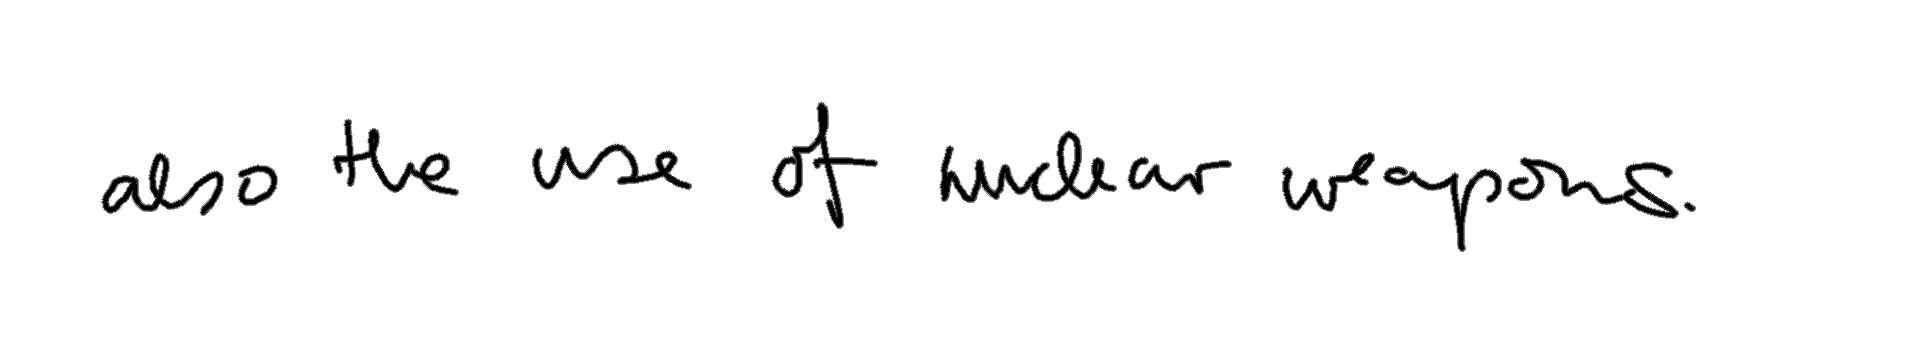 also the use of nuclear weapons.